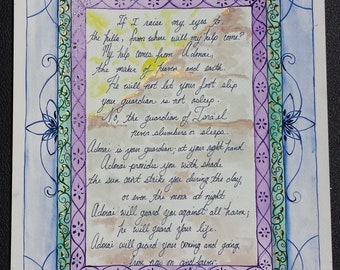 If I raise my eyes to
the hills, from where will my help come?
My help comes from Adonai,
the maker of heaven and earth.
He will not let your foot slip
your guardian is not asleep.
No, the guardian of Isra'el
never slumbers or sleeps.
Adonai is your guardian; at your right hand
Adonai provides you with shade
the sun can't strike you during the day
or even the moon at night.
Adonai will guard you against all harm;
he will guard your life.
Adonai will guard your coming and going
from now on and forever.